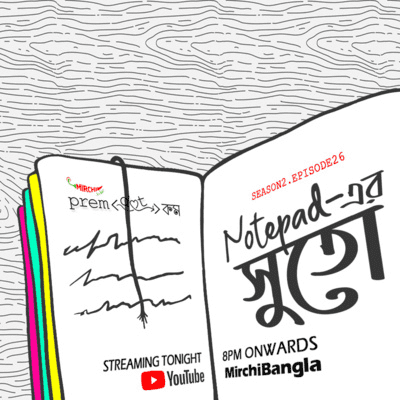 MIRCHI
prem<dot>কম
STREAMING TONIGHT
YouTube
SEASON2.EPISODE26
Notepad-এর
সুতো
8PM ONWARDS
MirchiBangla